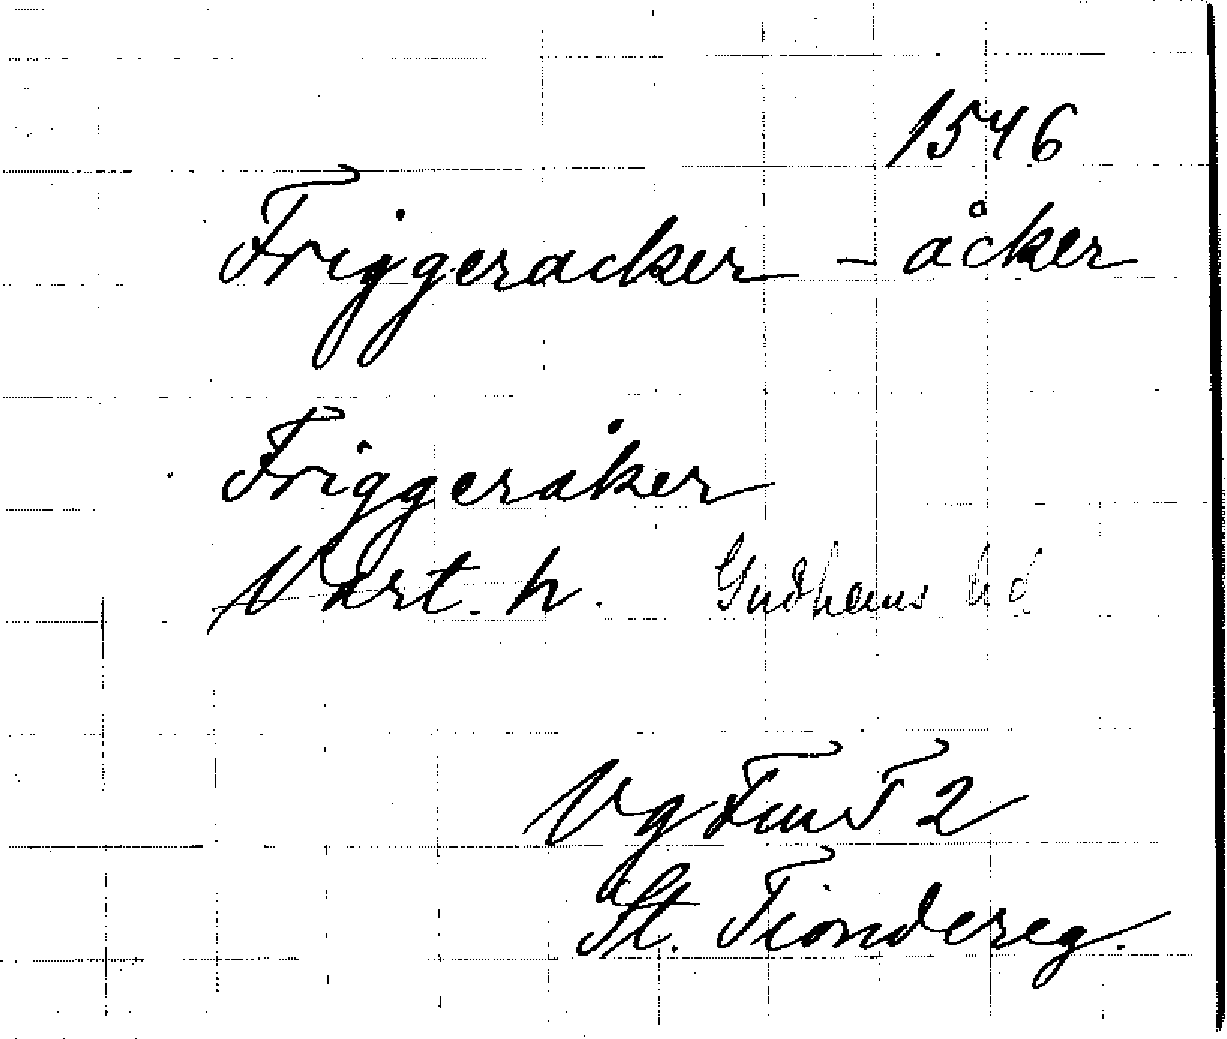 1546
Friggeracker – åcker
Friggeråker
Vart. h. Gudhems hd
Vg FmT 2
St. Tiondereg.